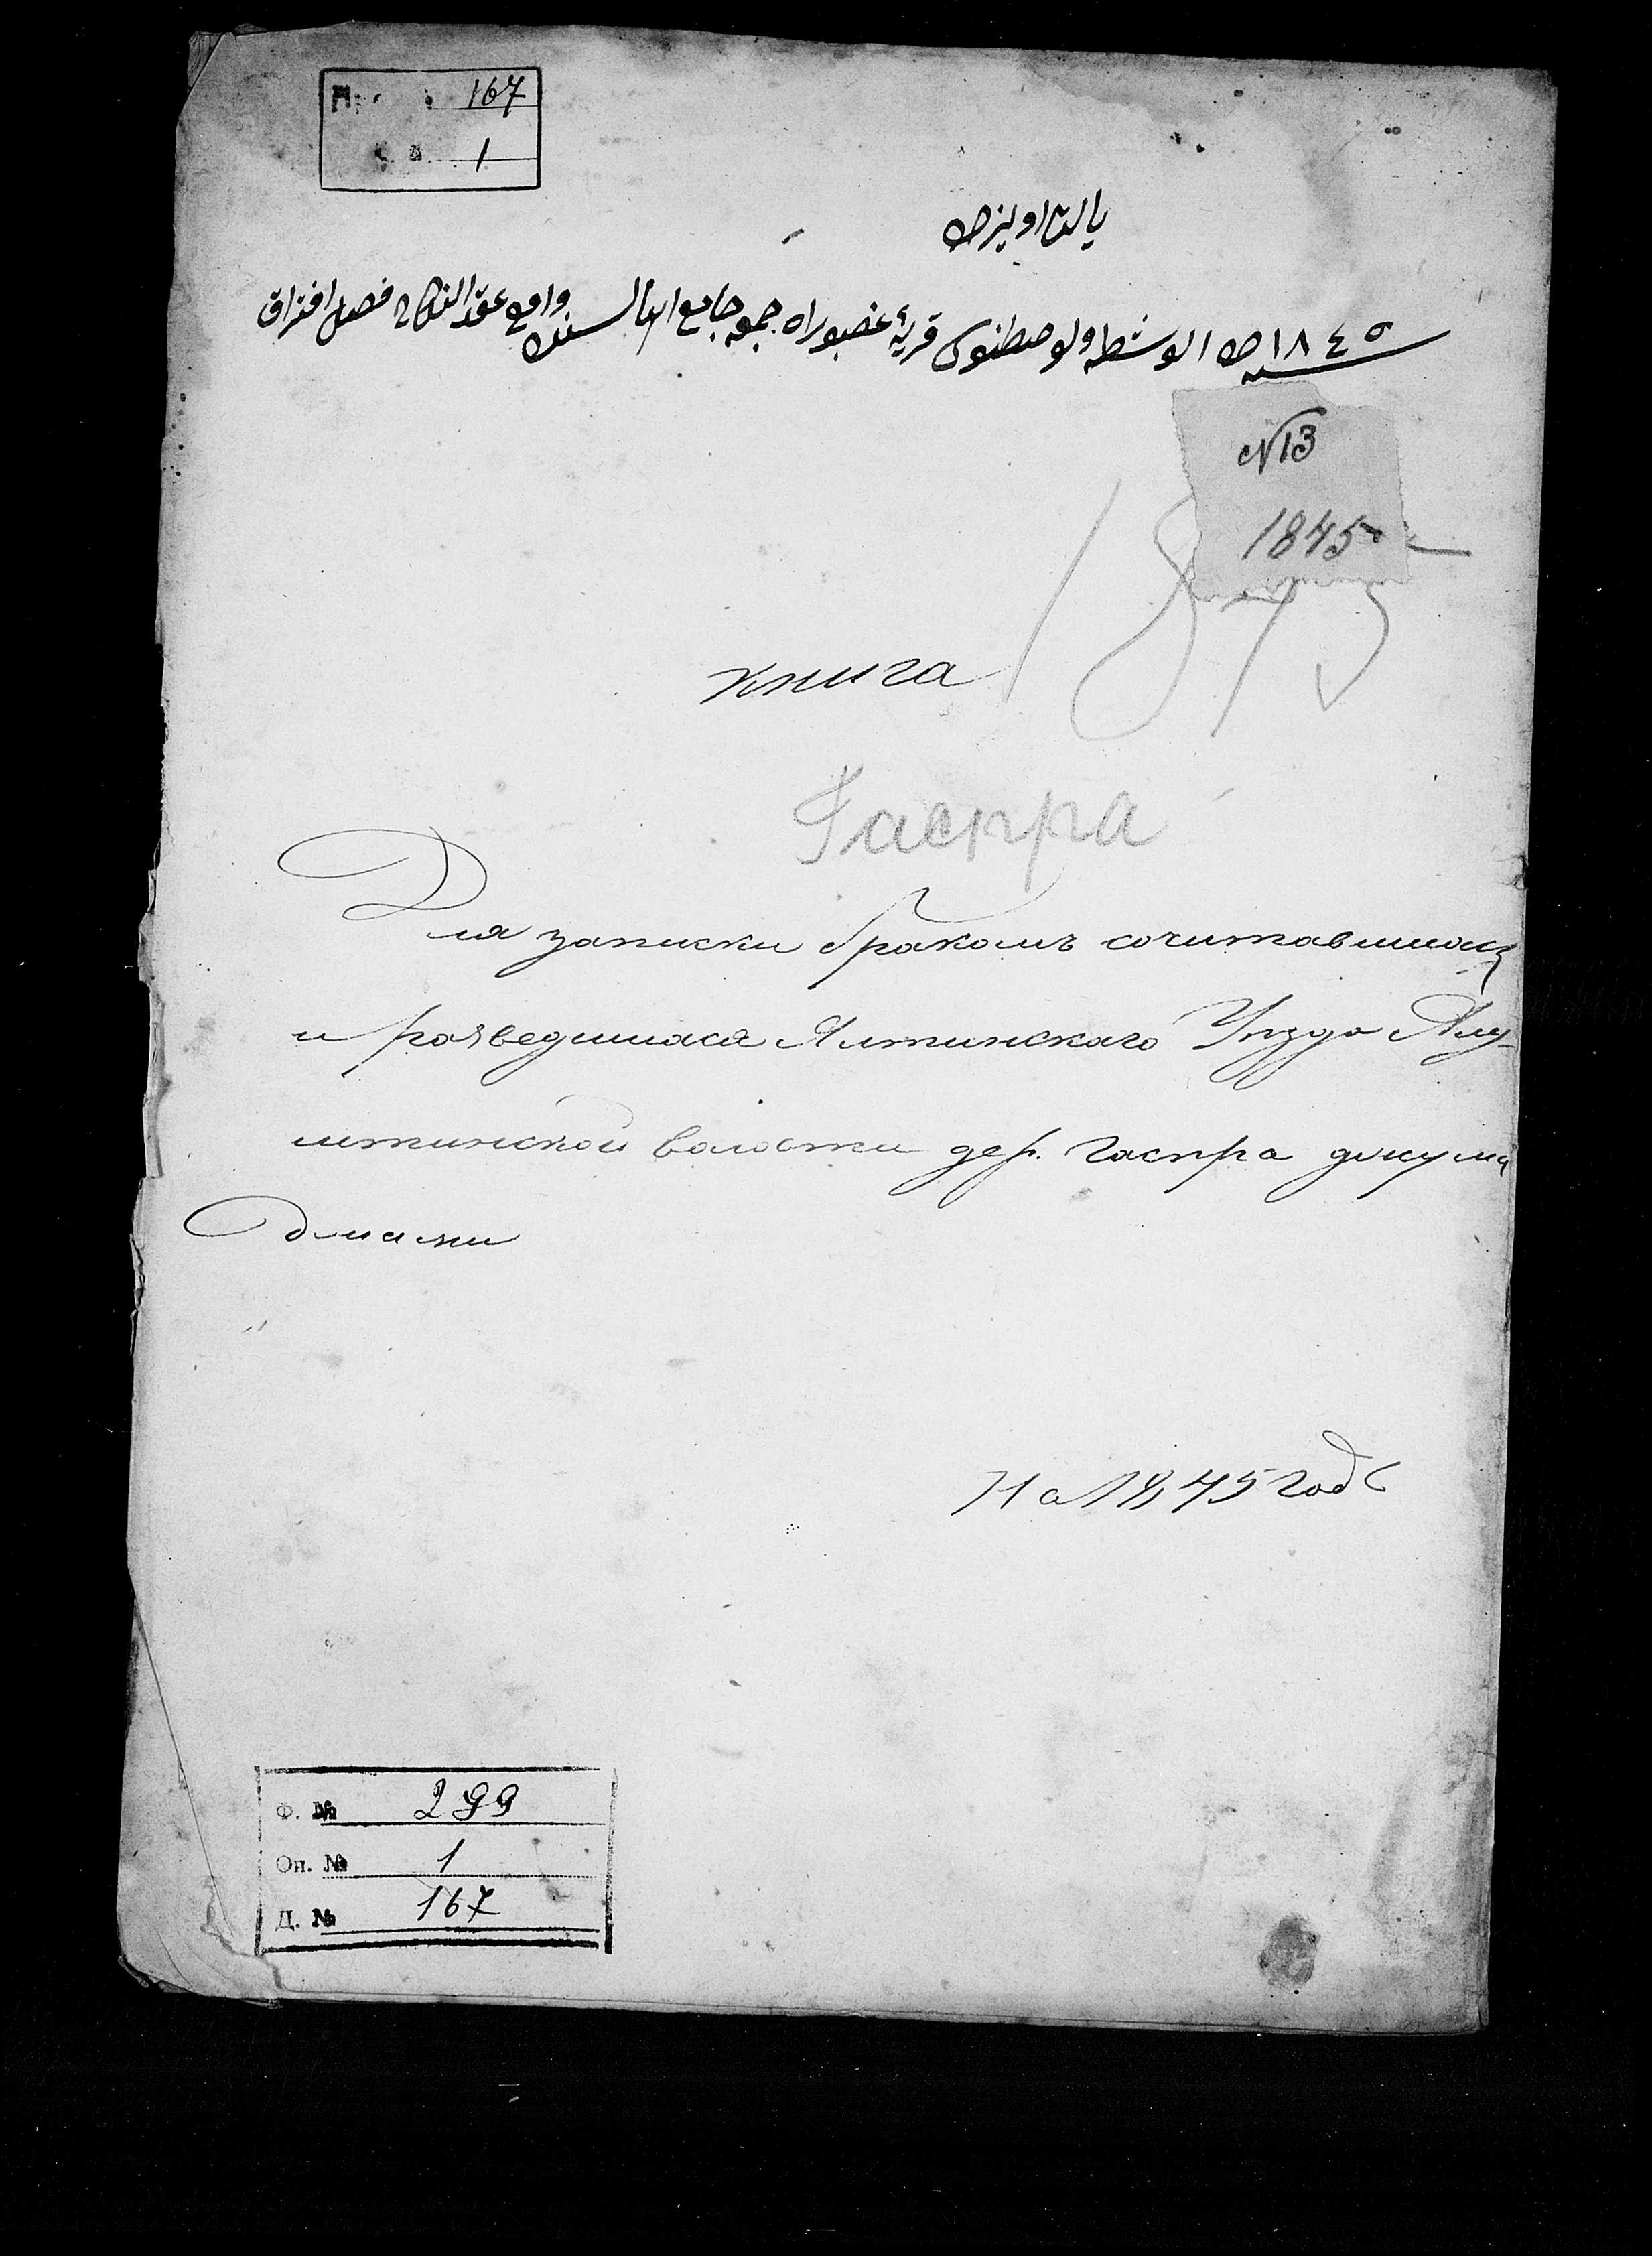 167
1
يالتا اويزده
سنه ١٨٤٥ ده الوشطه ولوصطنوك قريۀ غصبوراه جمعه جامع اهاليسنك واقع عقد النكاح فصل افتراق
N13
1845
1845
книга
Гаспра
Для записки бракомъ сочитавшихся
и розведшихся Ялтинскаго Уѣзда Алу-
штинской волости дер. Гаспра
На 1845 годъ
Ф. № 299
Оп. № 1
Д. № 167